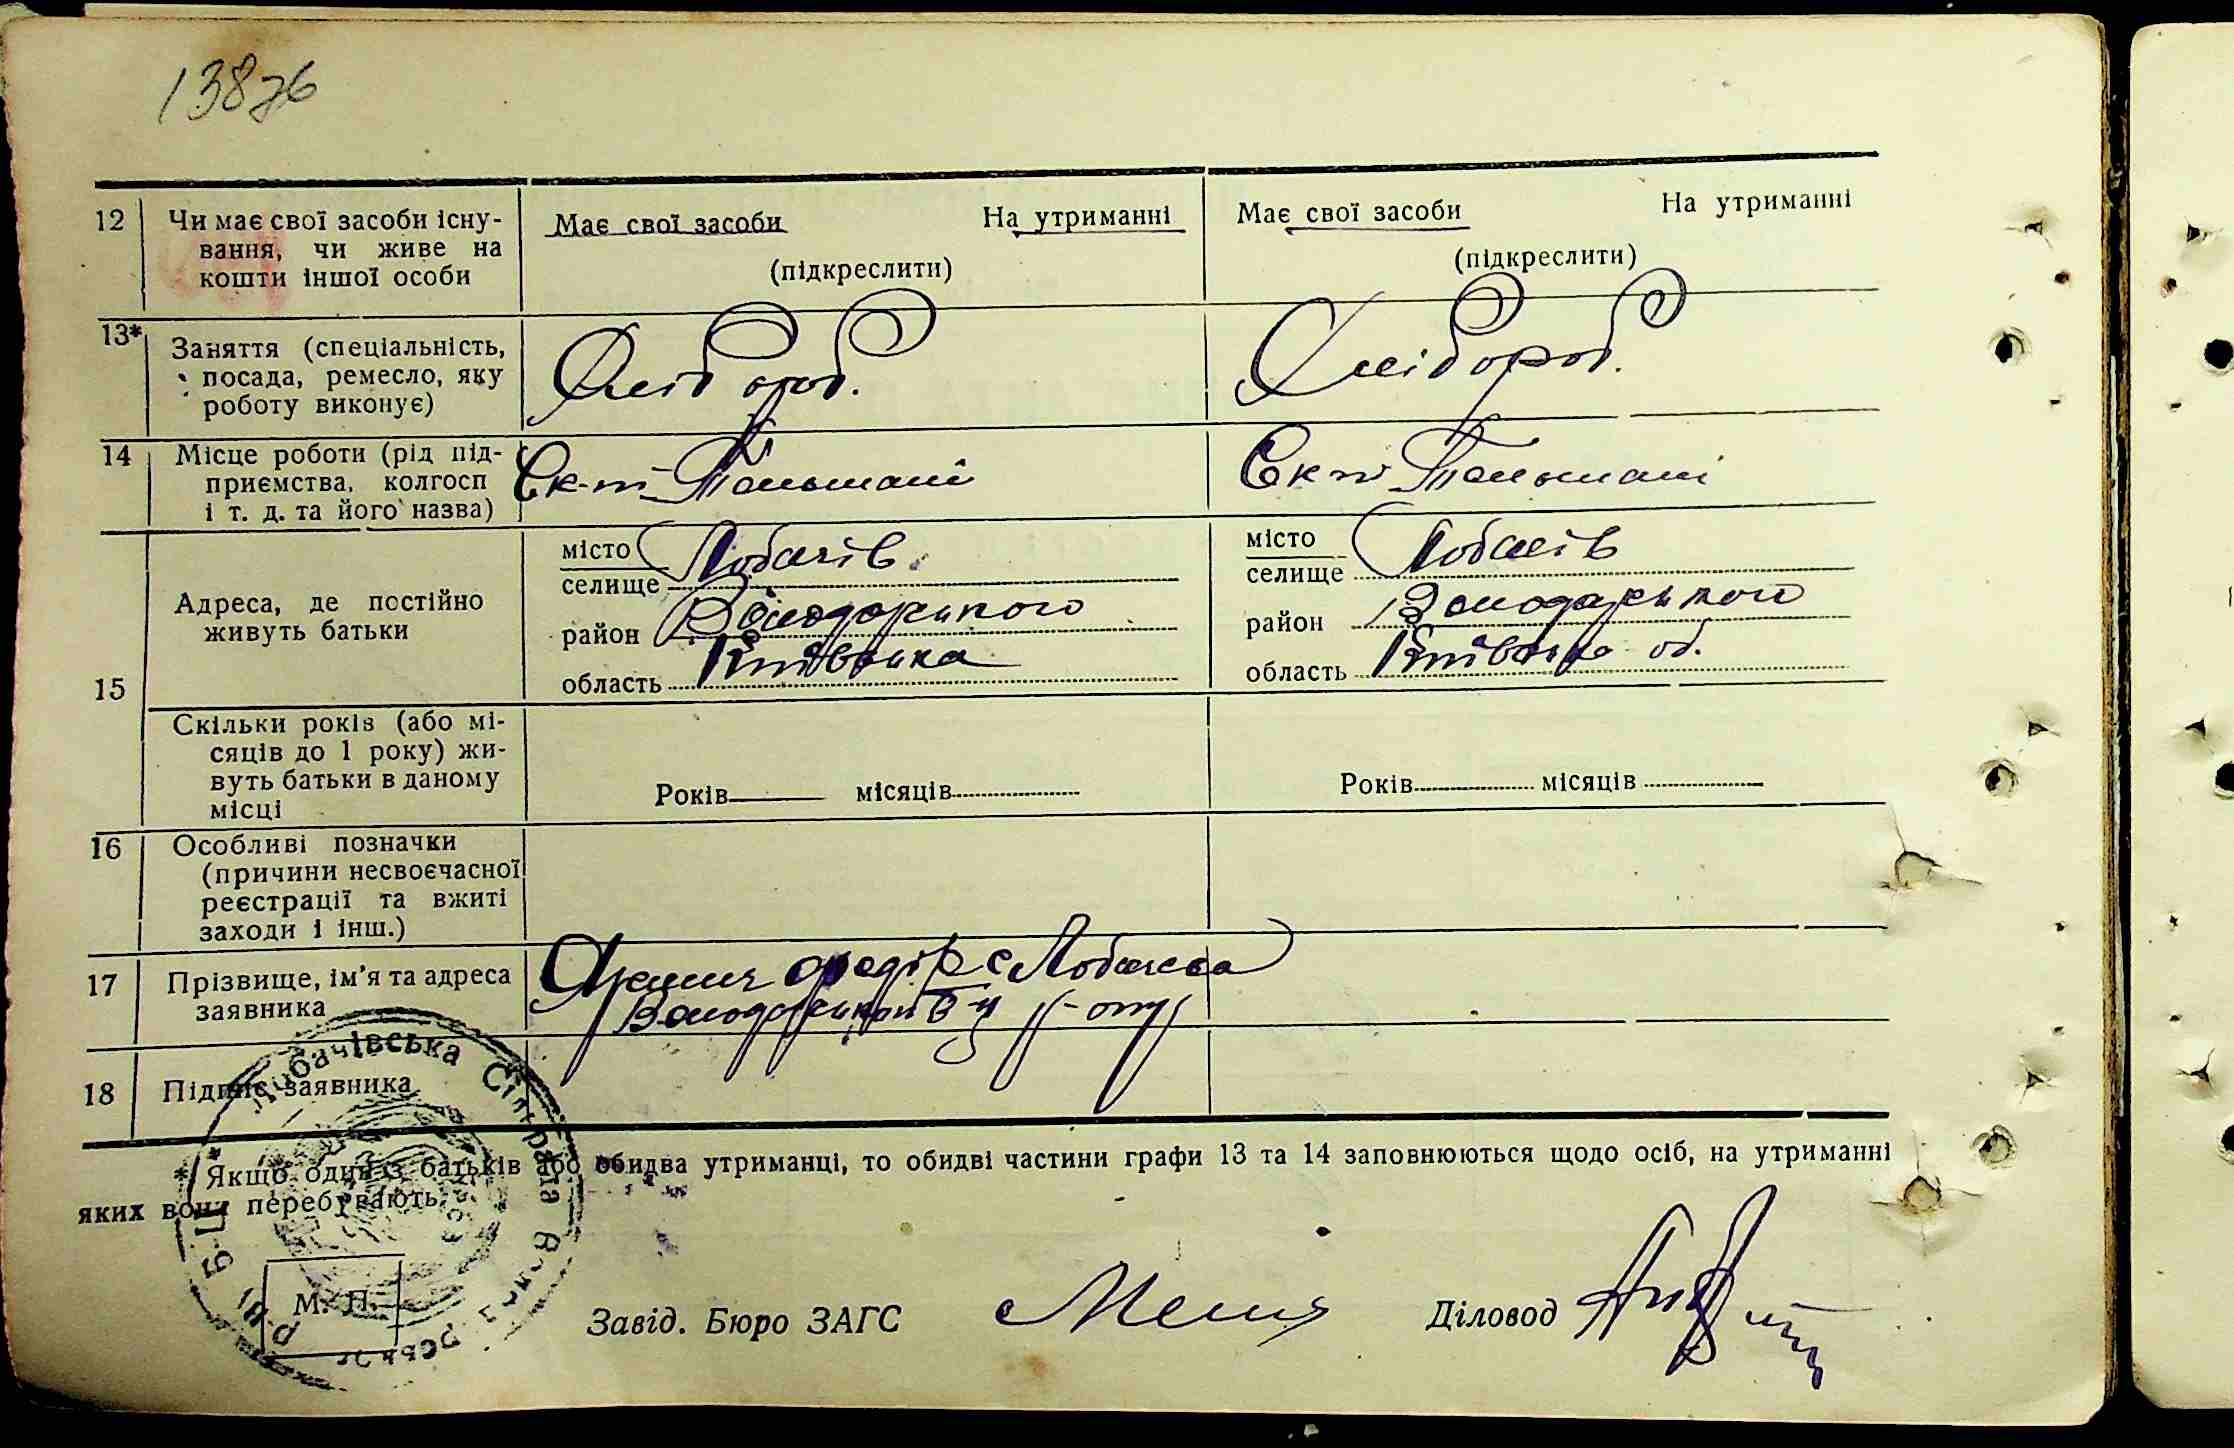 138
12 Чи має свої засоби існу-
вання, чи живе на
кошти іншої особи
Має свої засоби На утриманні
(підкреслити)
Має свої засоби На утриманні
(підкреслити)
13* Заняття (спеціальність,
посада, ремесло, яку
роботу виконує)
Хлібороб.
Хлібороб.
14 Місце роботи (рід під-
приємства, колгосп
і т. д. та його назва)
15
Адреса, де постійно
живуть батьки
місто
селище Лобачів
район Володарського
область Київська
місто
селище Лобачів
район Володарського
область Київська об.
Скільки років (або мі-
сяців до 1 року) жи-
вуть батьки в даному
місці
Років місяців
Років місяців
16 Особливі позначки
(причини несвоєчасної
реєстрації та вжиті
заходи і інш.)
17 Прізвище, ім'я та адреса
заявника
Федір с Лобачева
18 Підпис заявника
* Якщо один із батьків або обидва утриманці, то обидві частини графи 13 та 14 заповнюються щодо осіб, на утриманні
яких вони перебувають.
Лобачівська Сільрада
М. П.
Завід. Бюро ЗАГС
Діловод